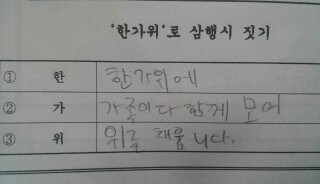 '한가위'로 삼행시 짓기
① 한 한가위에
② 가 가족이다 함께 모여
③ 위 위를 채웁니다.